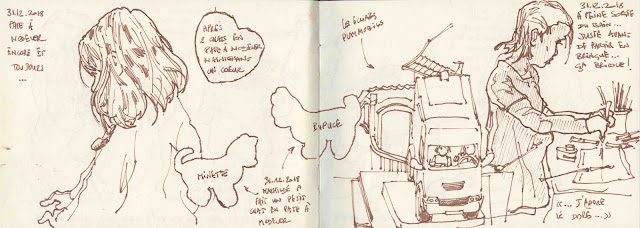 31.12.2018
PATE À
MODELER
ENCORE ET
TOUJOURS
...
APRÈS
2 CHATS EN
PATE À MODELER
MAINTENANT
UN COEUR
MINETTE
31.12.2018
MATHILDE A
FAIT UN PETIT
CHAT EN PATE À
MODELER
PUPUCE
LE
PLAYMOBILS
31.12.2018
À PEINE SORTIE
DU BAIN...
JUSTE AVANT
DE PARTIR EN
BRINGUE...
ÇA BRICOLE!
«... J'ADORE
LE DORÉ...»